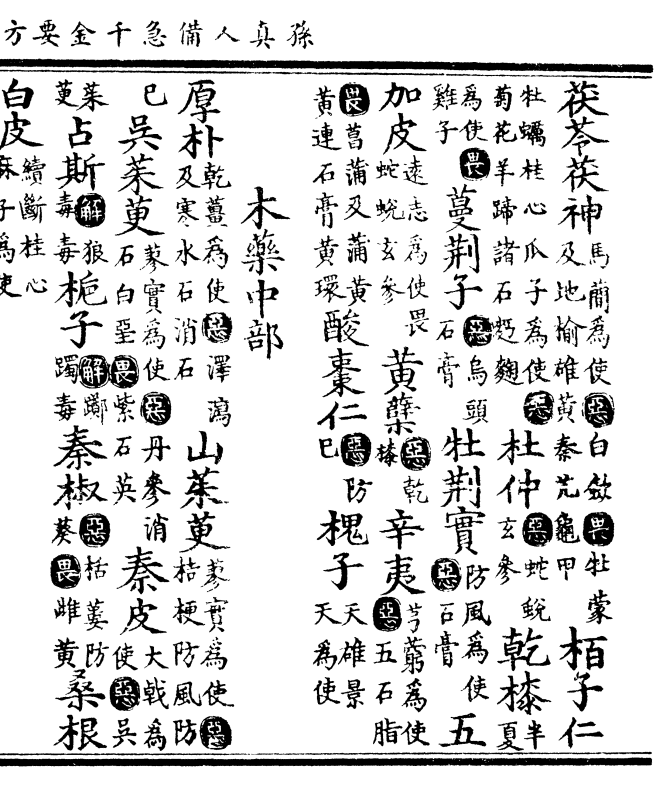 孫真人備急千金要方
茯苓茯神馬藺為使惡白斂畏牡蒙及地榆雄黃秦艽龜甲栢子仁
牡蠣桂心瓜子為使惡菊花羊蹄諸石麪麴杜仲惡蛇蛻玄參乾漆半夏
為使畏雞子蔓荊子惡烏頭石膏牡荊實防風為使惡石膏五
加皮遠志為使畏蛇蛻玄參黃蘗惡乾漆辛夷芎藭為使惡五石脂
畏菖蒲及蒲黃黃連石膏黃環酸棗仁惡防巳槐子天雄景天為使
木藥中部
厚朴乾薑為使惡澤瀉及寒水石消石山茱萸蓼實為使惡桔梗防風防
巳吳茱萸蓼實為使惡丹參消石白堊畏紫石英秦皮大戟為使惡吳
茱萸占斯解狼毒毒梔子解躑躅毒秦椒惡栝蔞防葵畏雌黃桑根
白皮續斷桂心麻子為使